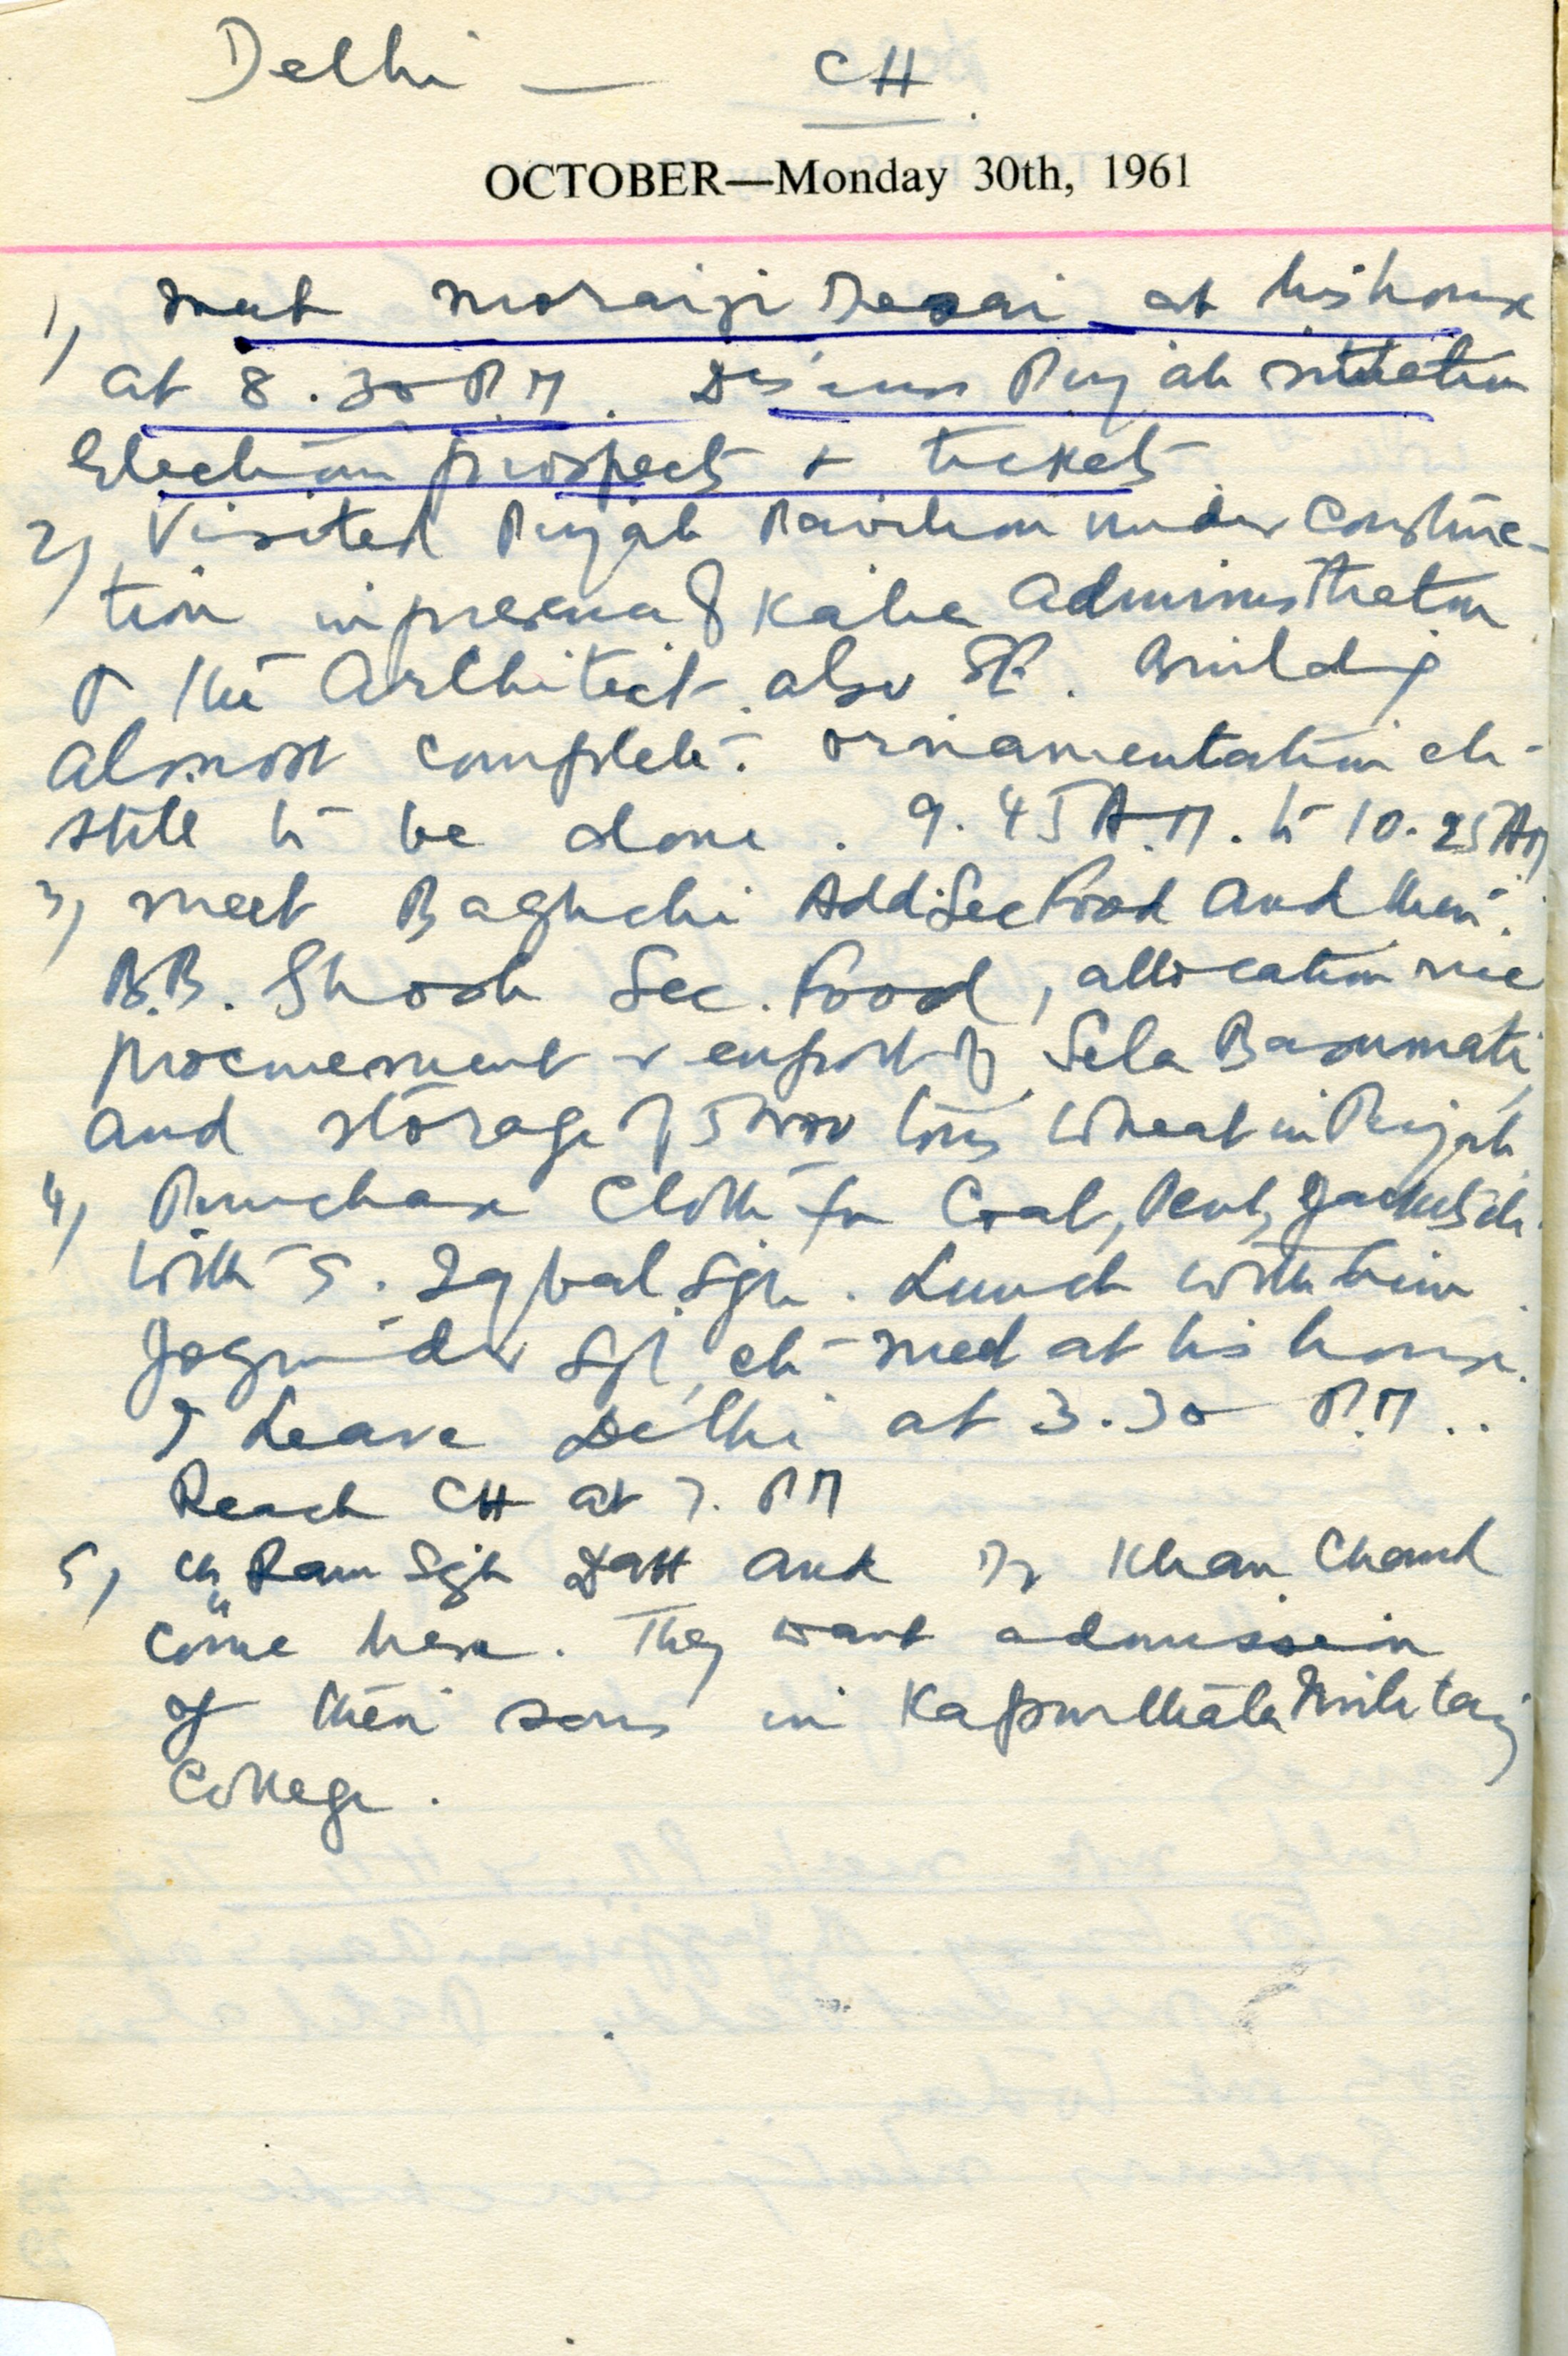 Delhi — CH.
OCTOBER—Monday 30th, 1961
1) meet Morarji Desai at his house
at 8.30 P.M. Discuss Punjab situation
Election prospects & tickets
2) Visited Punjab Pavilion under construc-
tion in presence of Kalia Administrator
& the Architect. also SE. Building
almost complete. ornamentation etc
still to be done. 9.45 A.M. to 10.25 AM
3) meet Baghchi Add: Sec Food and then
B.B. Ghosh Sec. Food, allocation rice
procurement & export of Sela Basumati,
and storage of tons Wheat in Punjab
4) Purchase Cloth for Coat, Pent, Jackets etc.
with S. Iqbal Sgh. Lunch with him.
Jogindar Sgh, etc meet at his house.
I Leave Delhi at 3.30 P.M..
Reach CH at 7. PM
5) Ch Ram Sgh Datt and Dr Khan Chand
come here. They want admission
of their sons in Kapurthala Military
College.